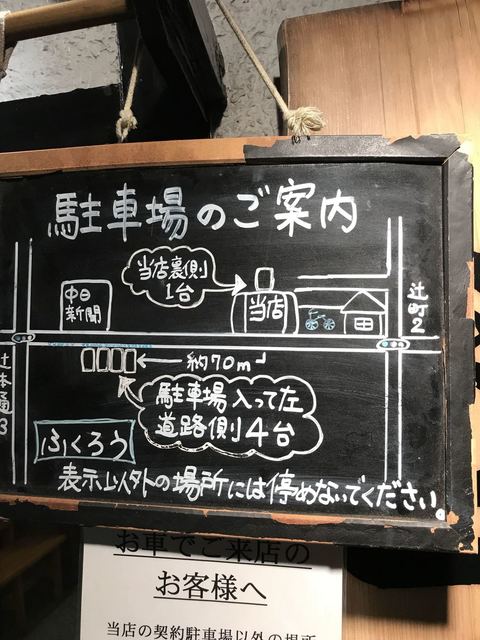 駐車場のご案内
当店裏側
1台
中日
新聞
当店
辻町2
約70m
辻本通3
駐車場入って左
道路側4台
ふくろう
表示以外の場所には停めないでください。
お車でご来店の
お客様へ
当店の契約駐車場以外の場所